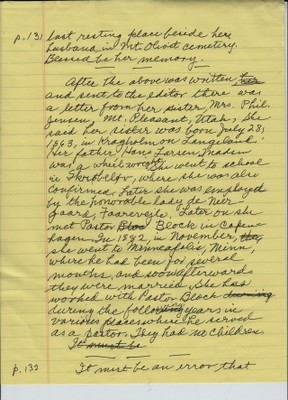 p.131 last resting place beside her
husband in Mt Olivet cemetery.
Blessed be her memory.
After the above was written her
and sent to the editor there was
a letter from her sister, Mrs. Phil.
Jensen, Mt. Pleasant, Utah, she
said her sister was born July 23,
1863, in Kragholm on Langeland.
Her father Hans Larsen Madsen
was a wheelwright. She went to school
in Skrobelev, where she was also
confirmed. Later she was employed
by the honorable lady de Neir
gaard, Faarevejle. Later on she
met Pastor Block in Copen
hagen. In 1892, in November, they
she went to Minneapolis, Minn,
where he had been for several
months, and soon afterwards
they were married. She has
worked with Pastor Block during
during the following years in
various places where he served
as a pastor. They had no children.
It must be
p.132 It must be an error that